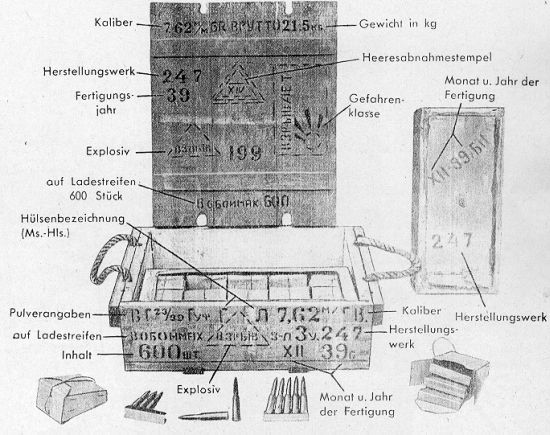 Kaliber
7,62 м/м GR. БРУТТО 21.5 кб
Gewicht in kg
Herstellungswerk
247
Heeresabnahmestempel
XIV
Fertigungs-
jahr
39
Gefahren-
klasse
Monat u. Jahr der
Fertigung
XII-39
Explosiv
199
auf Ladestreifen
600 Stück
В ОБОЙМАХ 600
Hülsenbezeichnung
(Ms.-Hls.)
247
Herstellungswerk
Pulverangaben
7,62 м/м
Kaliber
auf Ladestreifen
В ОБОЙМАХ
ВЗРЫВ
З-Л 3 У. 247
Herstellungs-
werk
Inhalt
600 шт.
XII
39 г.
Explosiv
Monat u. Jahr
der Fertigung